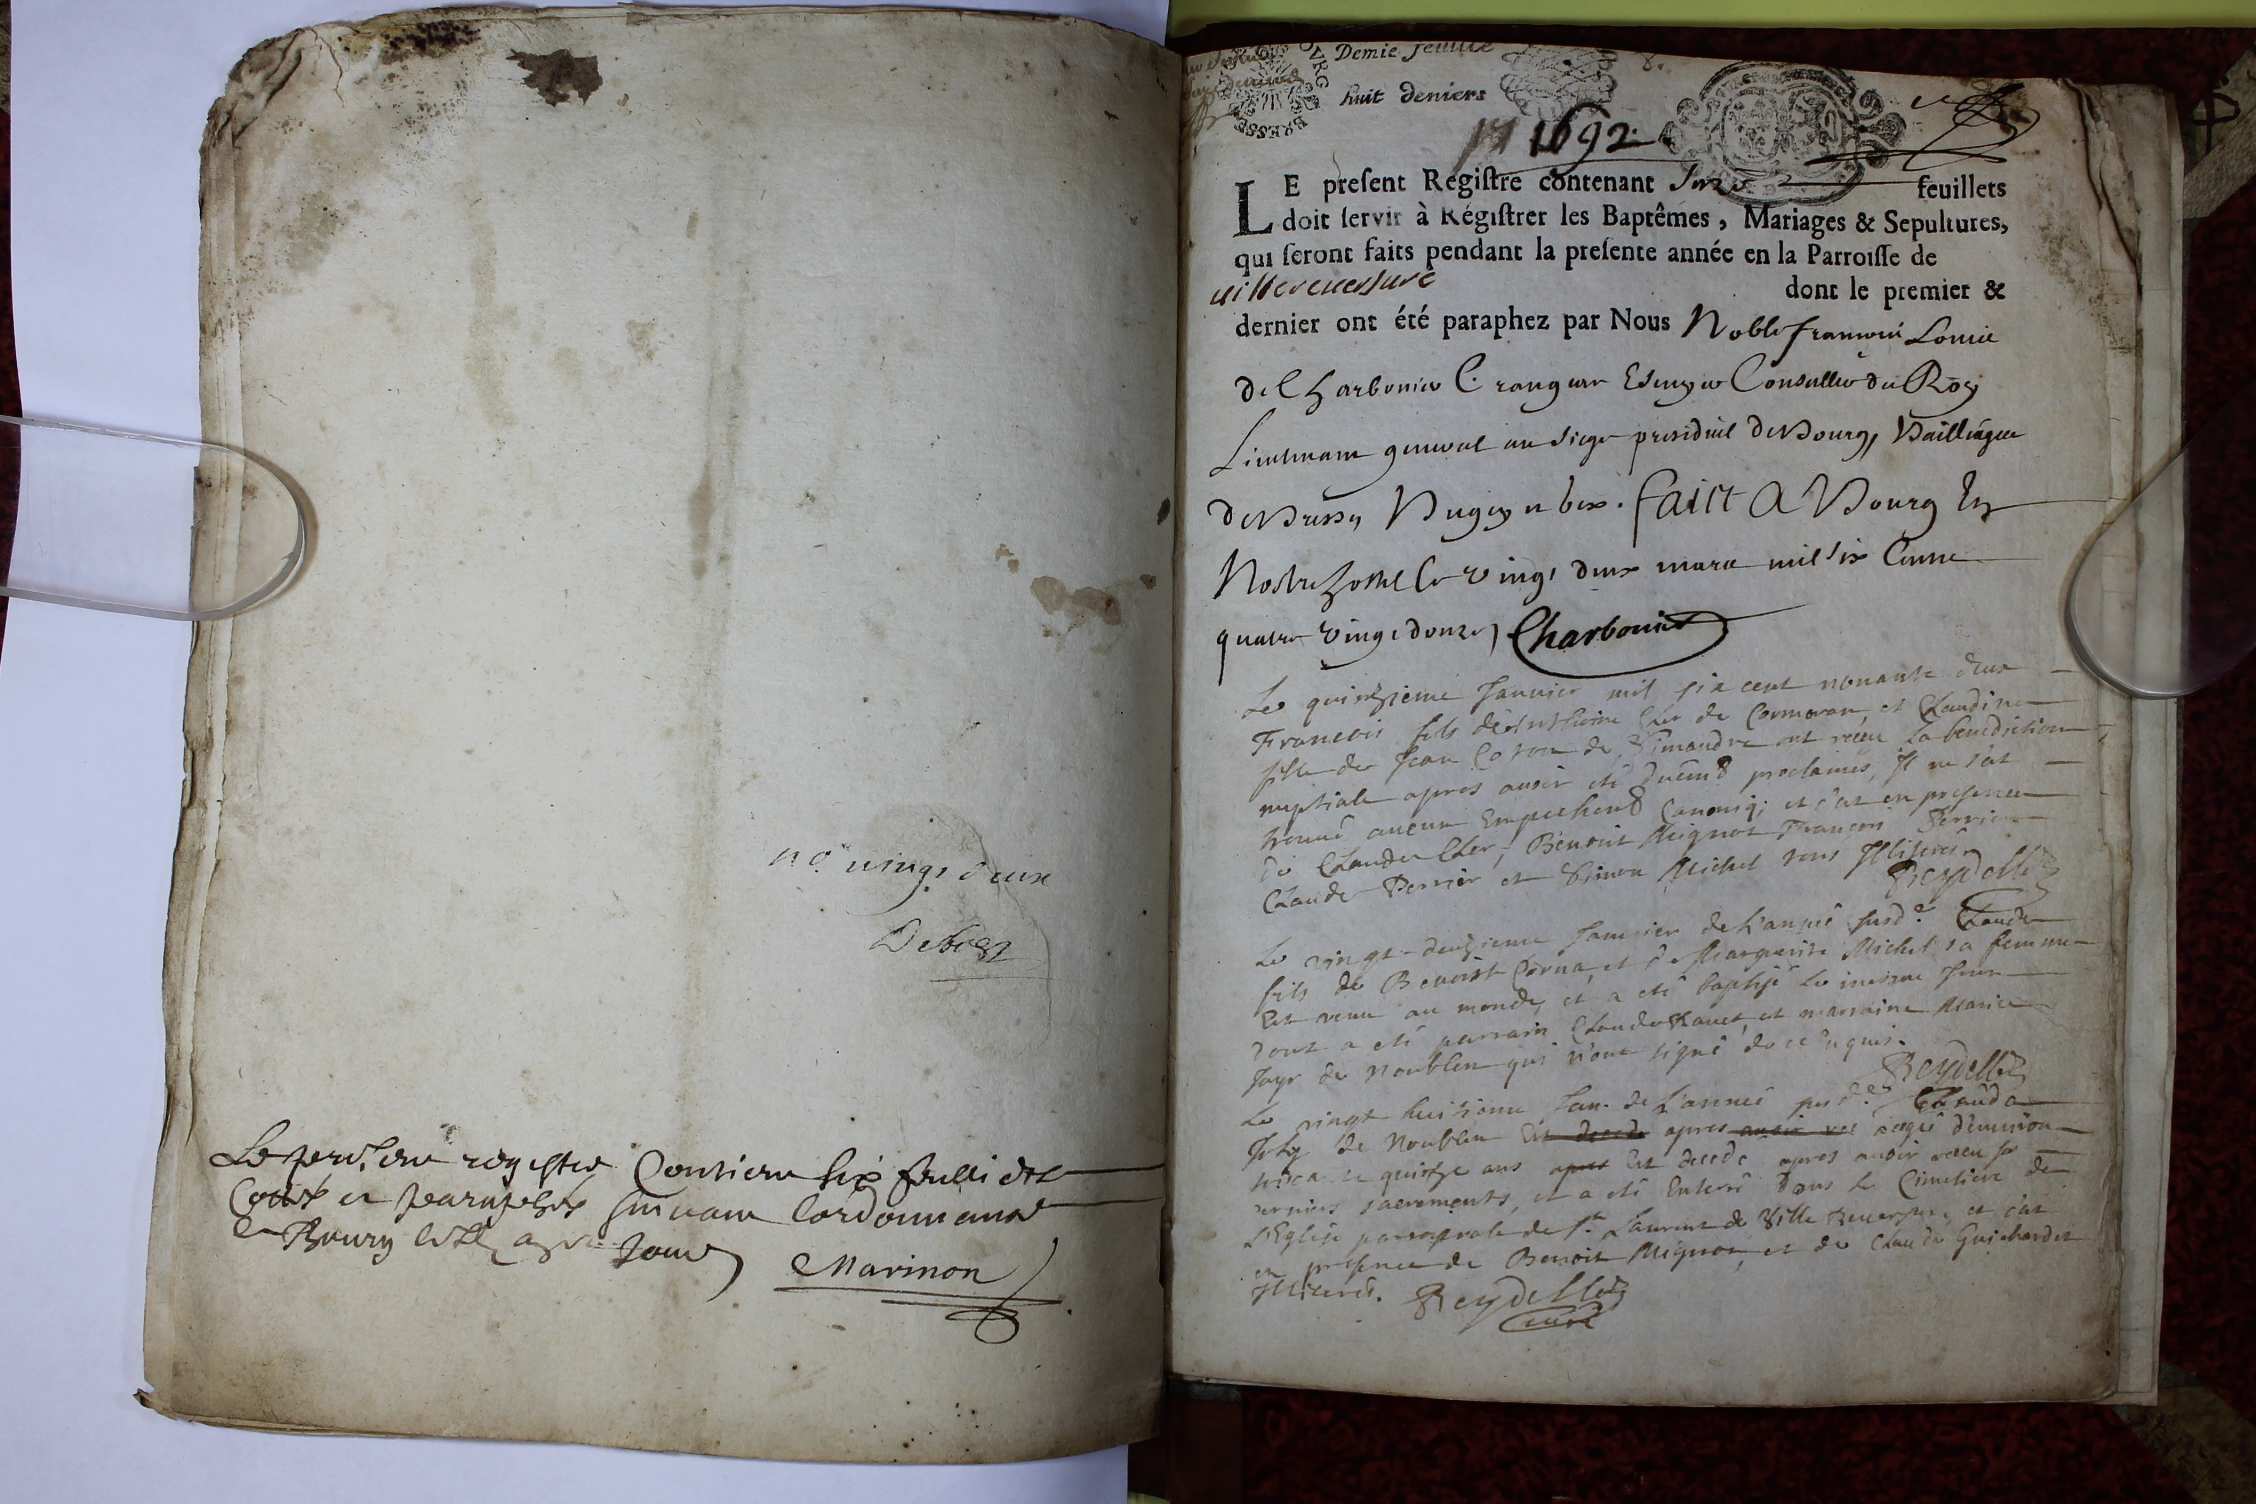 no. vingt deux
Debost
Le present registre Contient six feuillets
Cottés et paraphés suivant l'ordonnance
a Bourg
Marinon
Demie feuille
8.
huit deniers
BRESSE
1692.
LE present Registre contenant feuillets
doit servir à Régistrer les Baptêmes, Mariages & Sepultures,
qui seront faits pendant la presente année en la Parroisse de
villereversure dont le premier &
dernier ont été paraphez par Nous Noble francois Louis
de Charbonier Crangeac Escuyer Conseiller du Roy
Lieutenant general au siege presidial de Bourg, Bailliage
de Bresse, Bugey et Gex. faict A Bourg En
Nostre hostel Le vingt deux mars mil six Cents
quatre vingt douze, Charbonier
Le quinzieme Janvier mil six cent nonante deux
Francois fils de Cler de Cormoran, et Claudine
fille de Jean de Simandre ont receu la benediction
nuptiale apres avoir eté duemt proclamés, Il ne s'est
trouvé aucun Empechemt Canoniq; et c'at en presence
de Claude Cler, Benoist Mignot François Perrier
Claude Perrier et Simon Michel tous Illiterés.
Reydellet
Le vingt-deuzieme Janvier de l'année susde. Claude
fils de Benoist Corna, et de Marguerite Michel sa femme
Est venu au monde, et a eté baptisé le mesme Jour
dont a eté parrain Claude et marraine Marie
Jayr de Noublen qui n'ont signé de ce enquis.
Reydellet
Le vingt huitieme Jan. de l'année susde. Claude
Joly de Noublen Est decede apres avoir agé d'environ
quinze ans apres Est decede apres avoir receu les
derniers sacrements, et a eté Enterré dans le Cimetiere de
l'Eglise parroissiale de St. Laurent de Ville Reversure, et c'at
en presence de Benoit Mignot, et de Claude Guichardet
Illiterés. Reydellet
curé